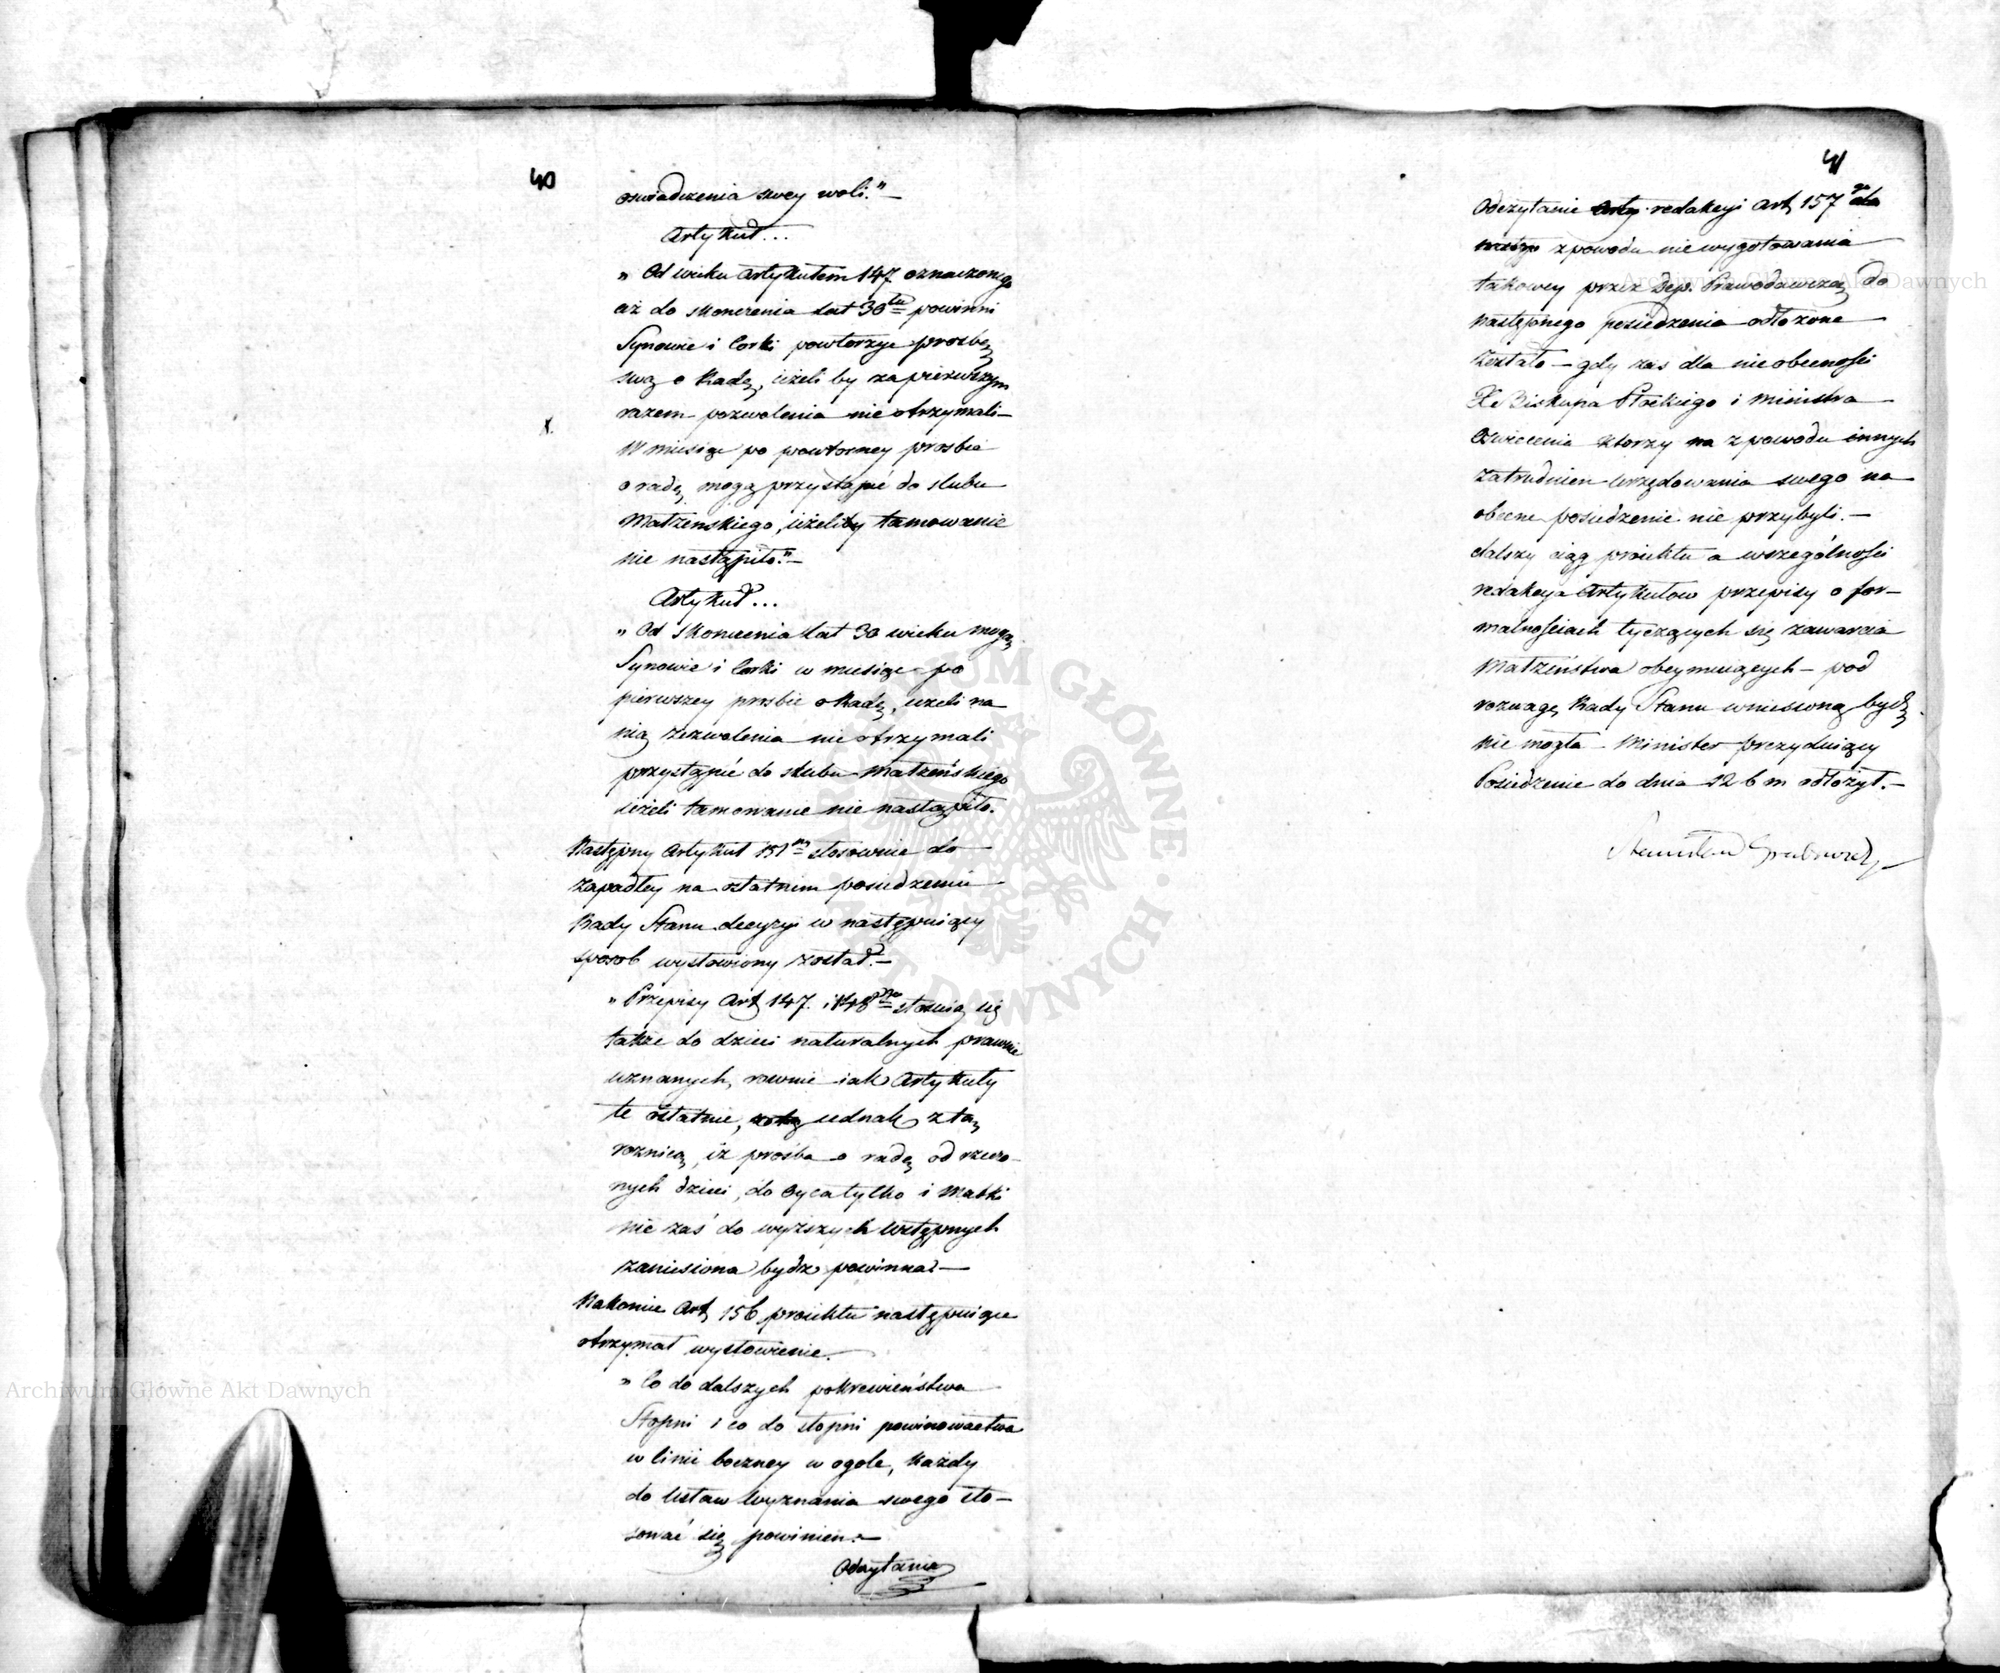 40
oswiadczenia swey woli." —
Artykuł...
„ Od wieku Artykułem 147 oznaczonego
aż do skonczenia lat 30tu powinni
Synowie i Corki powtorzyc prosbę
swą o Radę, ieżeli by za pierwszym
razem pozwolenia nie otrzymali —
W miesiąc po powtorney prosbie
o radę, mogą przystąpić do slubu
Małzenskiego, ieżeliby tamowanie
nie nastąpiło." —
Artykuł...
„ Od skonczenia lat 30 wieku mogą
Synowie i Corki w miesiąc po
pierwszey prosbie o Radę, ieżeli na
nią zezwolenia nie otrzymali
przystąpić do slubu Małzeńskiego
ieżeli tamowanie nie nastąpiło.
Następny Artykuł 151ny stosownie do
zapadłey na ostatnim posiedzeniu
Rady Stanu decyzyi w następuiący
sposob wysłowiony został. —
„ Przepisy Art 147. i 148 stosuią się
także do dzieci naturalnych prawnie
uznanych, rownie iak Artykuły
te ostatnie, iednak z tą
roznicą, iż prośba o radę od rzeczo-
nych dzieci, do Oyca tylko i Matki
nie zaś do wyższych wstępnych
zaniesiona bydz powinna. —
Nakoniec Art 156 proiektu następuiące
otrzymał wysłowienie.
„ Co do dalszych pokrewieństwa
Stopni i co do stopni powinowactwa
w linii boczney w ogole, każdy
do Ustaw Wyznania swego sto-
sować się powinien. —
Odczytanie
41
Odczytanie redakcyi Art 157go
z powodu nie wygotowania
takowey przez Dep. Prawodawczą do
następnego posiedzenia odłożone
zostało — gdy zas dla nieobecności
Xe Biskupa Płockiego i Ministra
Oswiecenia ktorzy z powodu innych
zatrudnien urzędowania swego na
obecne posiedzenie nie przybyli. —
dalszy ciąg proiektu a wszególności
redakcya Artykułow przepisy o for-
malnościach tyczących się zawarcia
Małżeństwa obeymuiących — pod
rozwagę Rady Stanu wniesioną bydz
nie mogła — Minister prezyduiący
Posiedzenie do dnia 12 b m odłożył. —
Stanisław Grabowski
Archiwum Główne Akt Dawnych
Archiwum Główne Akt Dawnych
ARCHIWUM GŁÓWNE AKT DAWNYCH